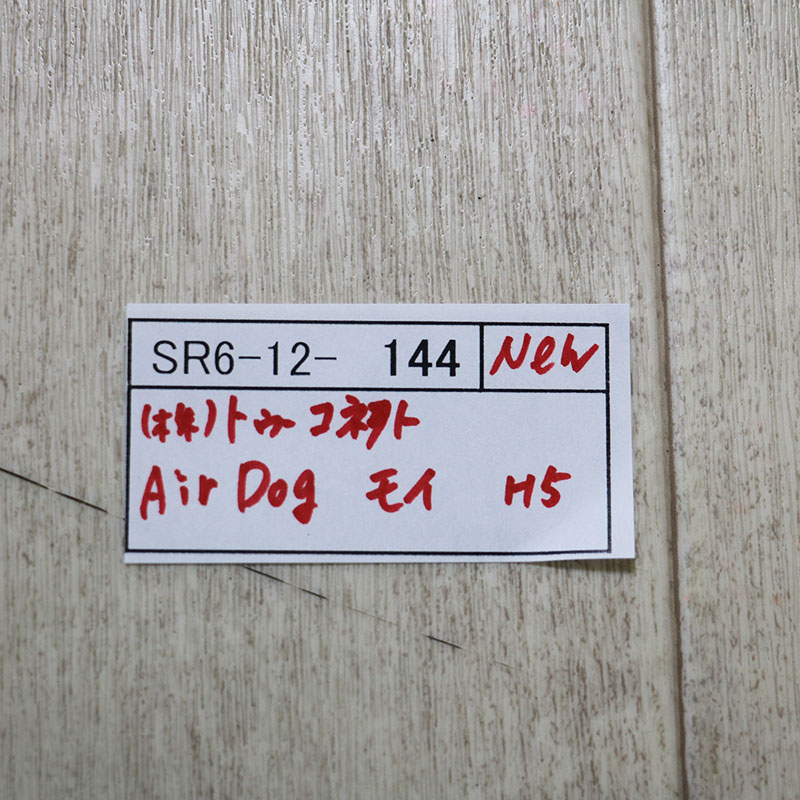 SR6-12- 144 New
(株)トゥーコネクト
Air Dog モイ H5